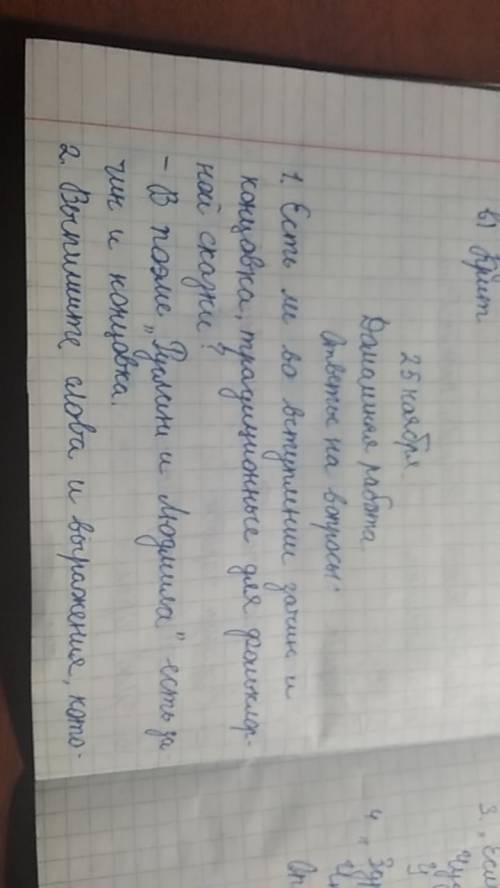 в) Крит
25 ноября
Домашняя работа
Ответы на вопросы:
1. Есть ли во вступлении зачин и
концовка, традиционные для фольклор-
ной сказки?
- В поэме „Руслан и Людмила" есть за
чин и концовка.
2. Выпишите слова и выражения, кото-
3.
4.